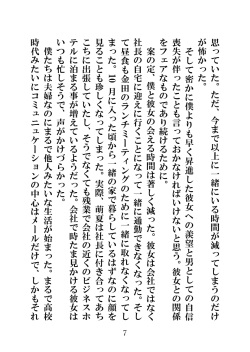 思っていた。ただ、今まで以上に一緒にいる時間が減ってしまうのだけ
が怖かった。
　そして密かに僕よりも早く昇進した彼女への羨望と男としての自信
喪失が伴ったことも言っておかなければいけないと思う。彼女との関係
をフェアなものであり続けるために。
　案の定、僕と彼女の会える時間は著しく減った。彼女は会社ではなく
社長の自宅に迎えに行くことになって一緒に通勤できなくなった。そし
て昼食も金田のランチミーティングのために一緒に取れなくなってし
まった。10月に入った頃から、一緒の家で暮らしているはずなのに顔を
見ないことも珍しくなくなってしまった。実際、萌夏は社長に付き合ってあち
こちに出張していたし、そうでなくても残業で会社の近くのビジネスホ
テルに泊まる事が増えているようだった。会社で時たま見かける彼女は
いつも忙しそうで、声がけづらかった。
　僕たちは夫婦なのにまるで他人みたいな生活が始まった。まるで高校
時代みたいにコミュニケーションの中心はメールだけで、しかもそれ
7